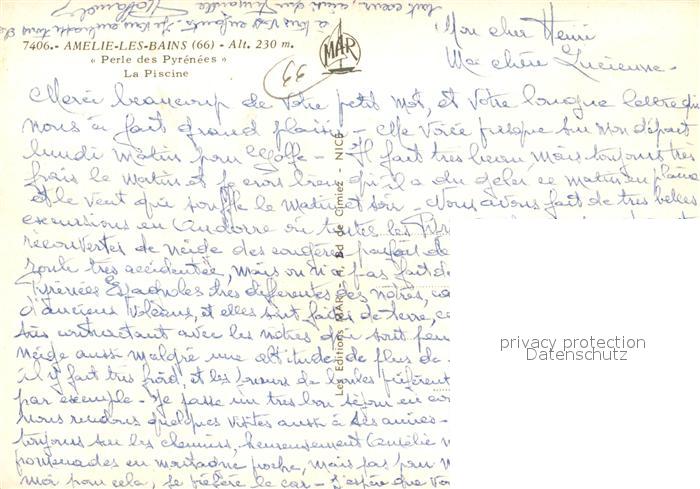 7406.- AMELIE-LES-BAINS (66) - Alt. 230 m.
« Perle des Pyrénées »
La Piscine
MAR
Les Editions "MAR" - Bd de Cimiez - NICE
Mon cher Henri
Ma chère Lucienne -
Merci beaucoup de votre petit mot, et votre longue lettre qui
nous a fait grand plaisir - Me voici presque sur mon départ
lundi matin pour - Il fait très beau, mais toujours très
frais le matin et je crois bien qu'il a du geler ce matin en plaine
et le vent qui souffle le matin et soir - Nous avons fait de très belles
excursions en Andorre où toutes les
recouvertes de neige des congères
route très accidentée, mais on n'a pas fait de
Pyrénées Espagnoles très différentes des nôtres,
d'anciens volcans, et elles sont faites de terre,
très contractant avec les nôtres qui sont
neige aussi malgré une altitude de plus de
il y fait très froid, et les de préfèrent
par exemple - Je passe un très bon séjour en
nous rendons quelques visites aussi à des amies -
toujours sur les chemins, heureusement Amélie
promenades en montagne proche, mais pas pour
moi pour cela, je préfère le car - J'espère que
privacy protection
Datenschutz